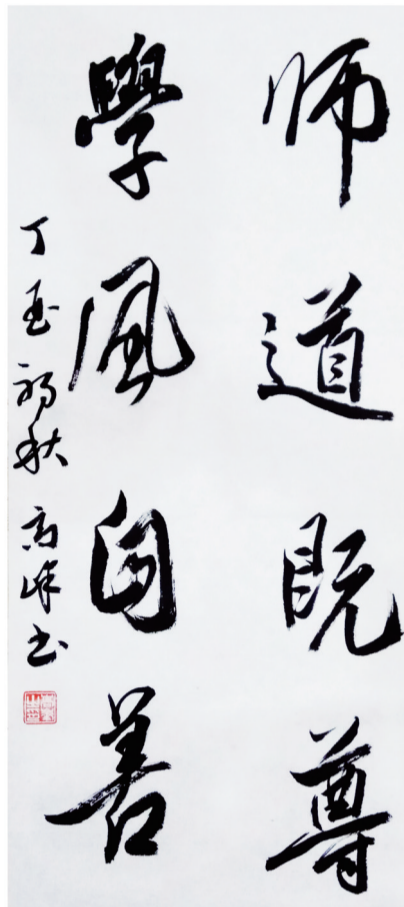 师道既尊
學風自善
丁酉初秋高峰书